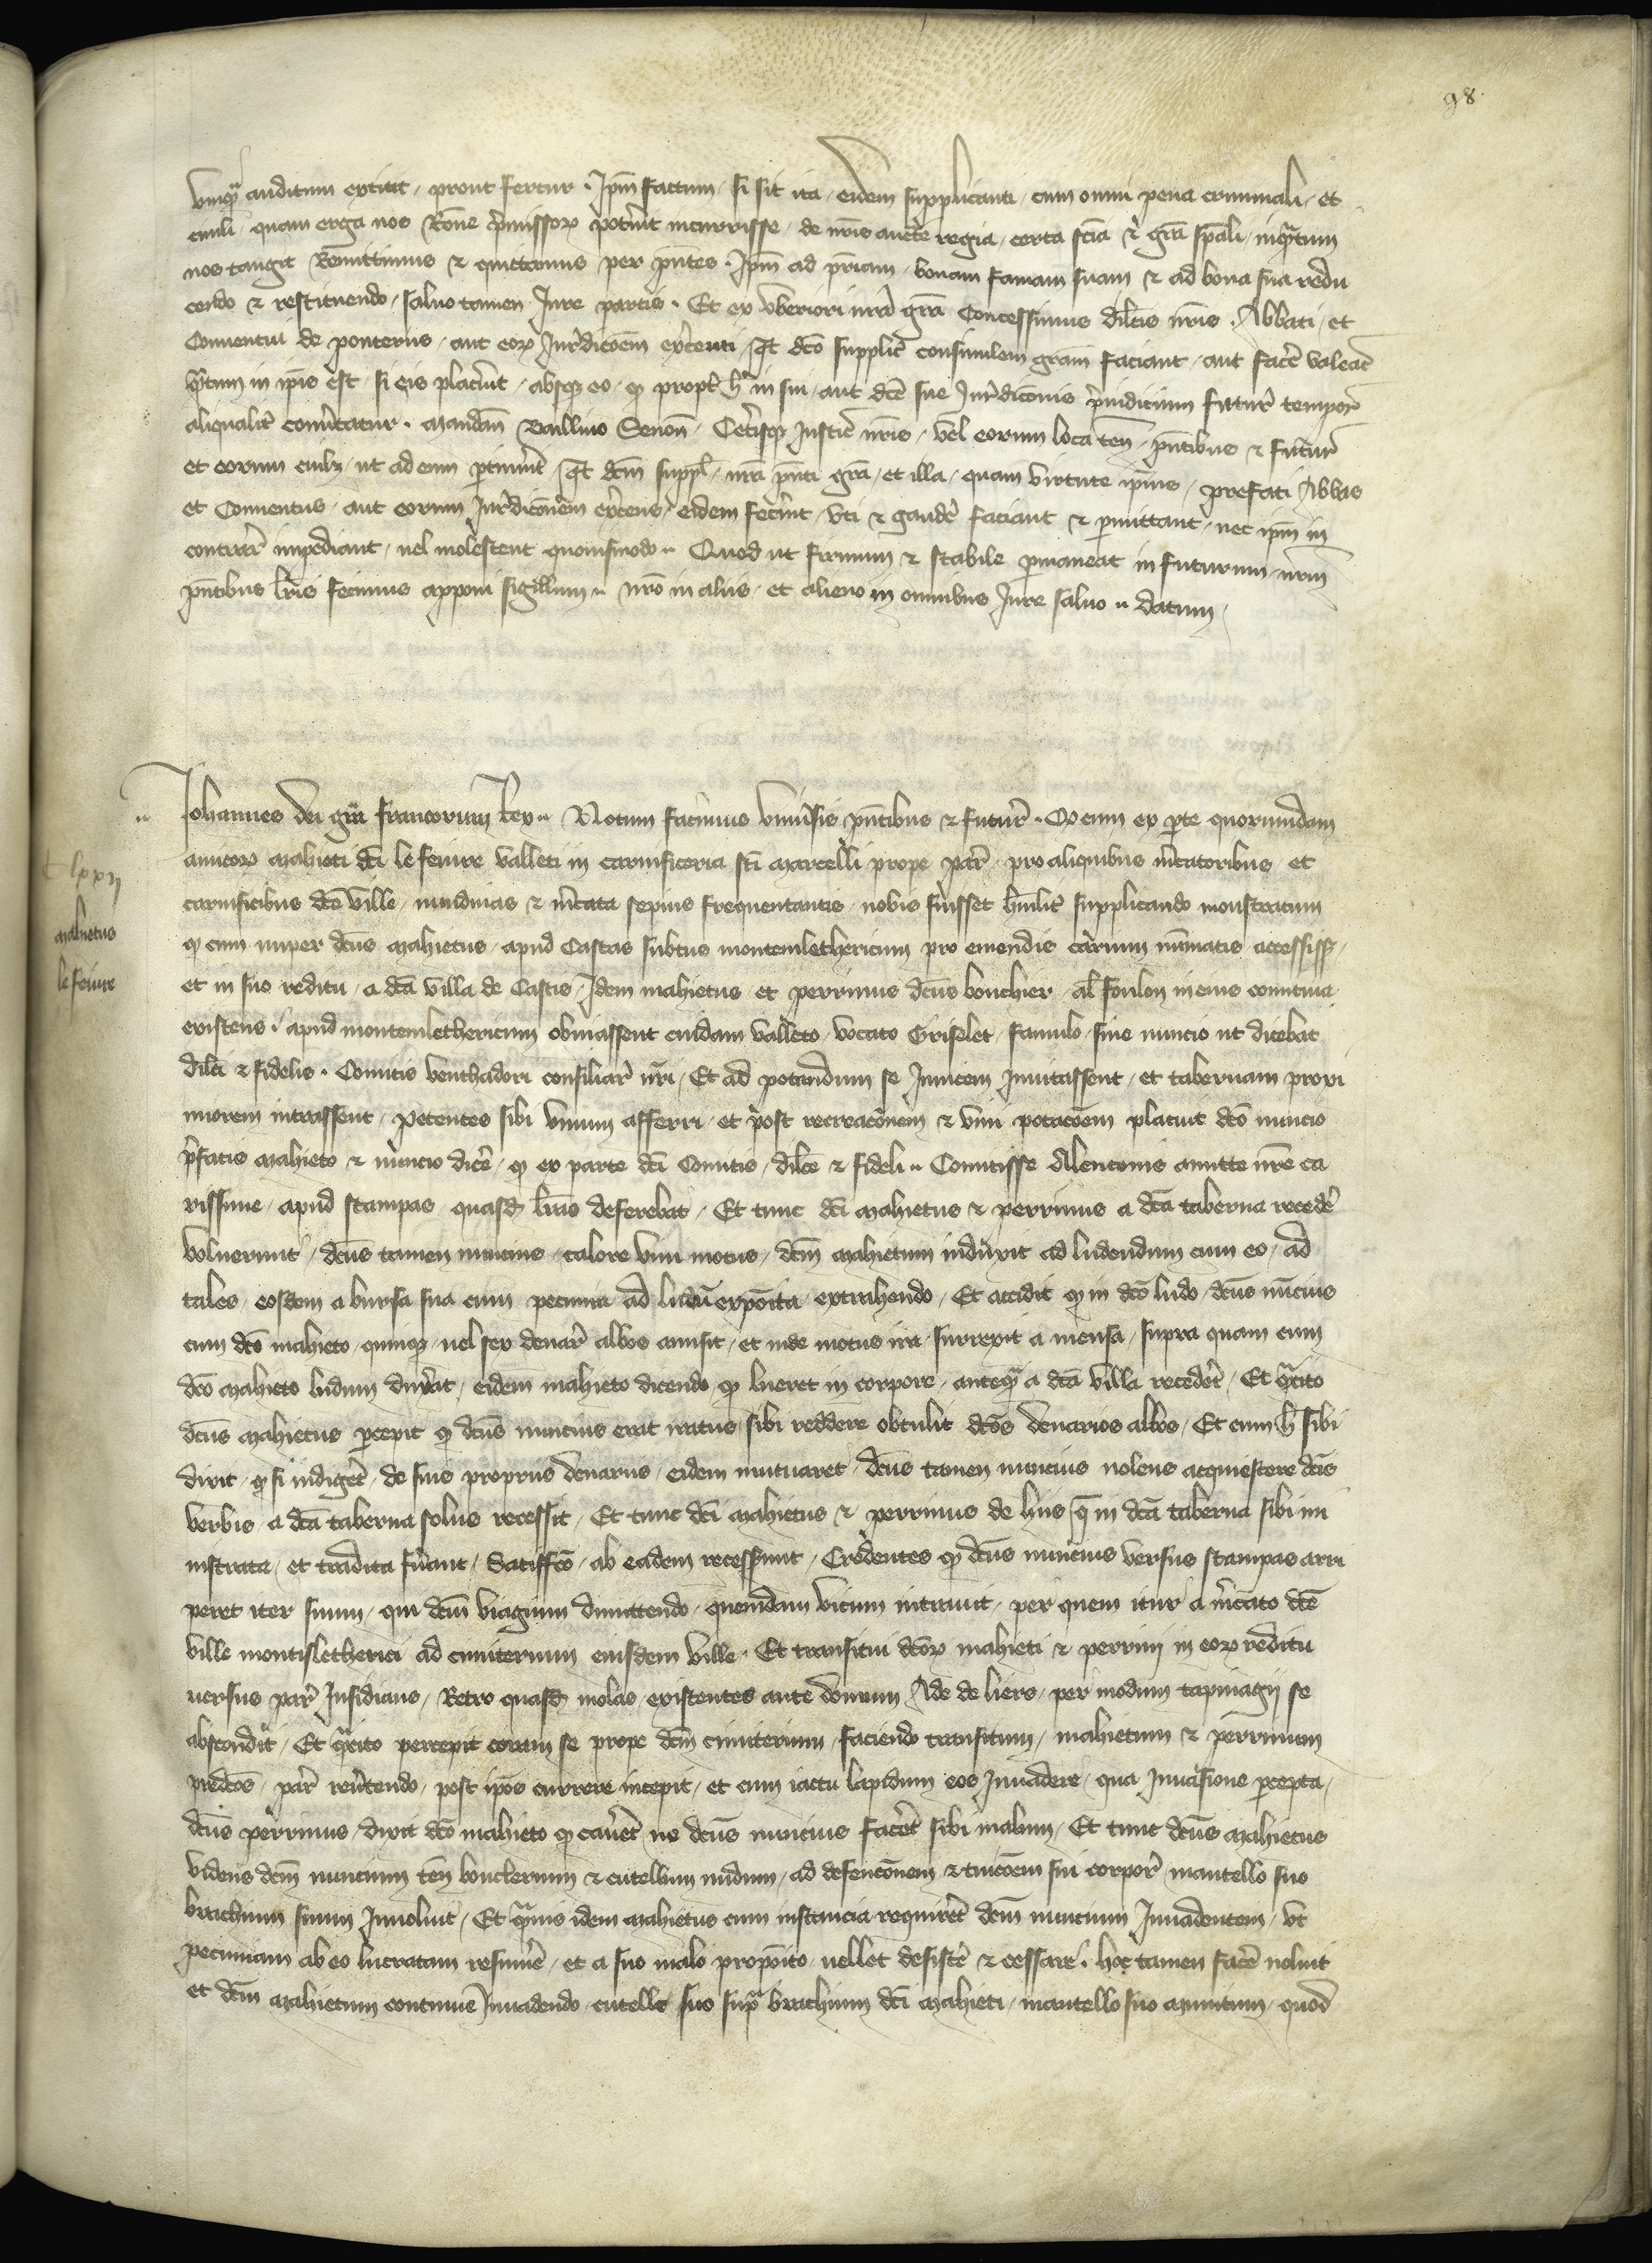 98
unq̃ auditum extitit / prout fertur . Ip̃m factum / si sit ita / eidem supplicanti / cum omni pena criminali / et
ciuili / quam erga nos Rõne p̃missoꝝ pot̾it incurrisse / de nr̃is auct̃te regia / certa scĩa & gr̃a sp̃ali / inq̃tum
nos tangit Remittimus & quittamus per pñtes . Ip̃m ad pr̃iam / bonam famam suam & ad bona sua redu
cendo & restituendo / saluo tamen Iure partis . Et ex vberiori nr̃a gr̃a Concessimus dilc̃is nr̃is . Abbati / et
Conuentui de ponteriis / aut eoꝝ Iur̾dicõem ex̾centi / Qt dc̃o supplic̃ consimilem gr̃am faciant / aut fac̾e valeãt
q̃tum in ip̃is est / si eis plac̾it / absqꝫ eo / qꝫ propt̾ h̾ in sui / aut dc̃e sue Iur̾dicõnis p̃iudicium futur̾ tempor̾
aliqualit̾ conu̾tatur . Mandam̃ Baillivo Senon̾ / Cet̾isqꝫ Iustic̃ nr̃is / vel eorum loca teñ / pñtibus & futur̾
et eorum cuilꝫ / ut ad eum p̱tinu̾it / Qt dc̃m suppl̃ / nr̃a pñti gr̃a / et illa / quam virtute ip̃ius / prefati Abbas
et Conuentus / aut eorum Iur̾dicõnem ex̾cens / eidem fec̾int / vti & gaud̾e faciant & p̱mittant / nec ip̃m in
contrar̾ impediant / uel molestent quouismodo .. Quod ut firmum & stabile p̱maneat in futurum / nr̃m
pñtibus lr̃is fecimus apponi sigillum .. nr̃o in aliis / et alieno in omnibus Iure saluo .. datum /
Iohannes dei gr̃a francorum Rex .. Notum facimus vniu̾sis pñtibus & futur̾ . Qꝫ cum ex p̱te quorumdam
amicoꝝ Mahieti dc̃i le feiure valleti in carnificeria sc̃i Marcelli prope par̾ / pro aliquibus m̾catoribus / et
Clxxij
carnificibus dc̃e ville / nundinas & m̾cata sepius frequentantis / nobis fuisset hũilit̾ supplicando monstratum
Mahietus
qꝫ cum nuper dc̃us Mahietus / apud Castas subtus montemlethericum pro emendis carnium nũmatis accessissꝫ /
le feiure
et in suo reditu / a dc̃a villa de Castis / Idem mahietus et perrinus dc̃us bouchier / al̃ foulon in eius comitiua
existens / apud montemlethericum obuiassent cuidam valleto / vocato Griselet / famulo / siue nuncio ut dicebat
dilc̃i & fidelis . Comitis venthadori consiliar̾ nr̃i / Et ad potandum se Inuicem Inuitassent / et tabernam proxi
miorem intrassent / petentes sibi vinum afferri / et post recreacõnem & vini potacõem placuit dc̃o nuncio
p̃fatis Mahieto & nuncio dic̾e / qꝫ ex parte dc̃i Comitis / dilc̃e & fideli .. Comitisse Alenconis amitte nr̃e ca
rissime / apud stampas quasd̃ lr̃as deferebat / Et tunc dc̃i Mahietus & perrinus a dc̃a taberna reced̾e
voluerunt / dc̃us tamen nuncius / calore vini motus / dc̃m Mahietum induxit ad ludendum cum eo / ad
tales / eosdem a bursa sua cum pecunia ad ludũ expõita / extrahendo / Et accidit qꝫ in dc̃o ludo / dc̃us nũcius
cum dc̃o mahieto / quinqꝫ / uel sex denar̾ albos amisit / et inde motus ira / surrexit a mensa / supra quam cum
dc̃o Mahieto ludum dux̾at / eidem mahieto dicendo qꝫ lueret in corpore / anteq̃ a dc̃a villa reced̾et / Et q̃cito
dc̃us Mahietus p̱cepit qꝫ dc̃us nuncius erat iratus / sibi reddere obtulit dc̃os denarios albos / Et cum h̾ sibi
dixit / qꝫ si indig̾et / de suis propriis denariis / eidem mutuaret / dc̃us tamen nuncius nolens acquiescere dc̃is
verbis / a dc̃a taberna solus recessit / Et tunc dc̃i Mahietus & perrinus de hiis q̃ in dc̃a taberna sibi mi
nistrata / et tradita fu̾ant / Satiffc̃o / ab eadem recesserunt / Credentes qꝫ dc̃us nuncius versus stampas arri
peret iter suum / qui dc̃m viagium dimittendo / quemdam vicum intrauit / per quem itur a m̾cato dc̃e
ville montisletherici ad cimiterium eiusdem ville . Et transitui dc̃oꝝ mahieti & perrini in eoꝝ reditu
uersus par̾ Insidians / Retro quasd̃ molas / existentes ante domum Ade de liers / per modum tapinagij se
abscondit / Et q̃cito percepit coram se prope dc̃m cimiterium / faciendo transitum / mahietum & perrinum
predc̃os / par̾ reu̾tendo / post ip̃os currere incepit / et cum iactu lapidum eos Inuadere / qua Inuasione p̱cepta /
dc̃us perrinus / dixit dc̃o mahieto qꝫ cau̾et ne dc̃us nuncius fac̾et sibi malum / Et tunc dc̃us Mahietus
videns dc̃m nuncium teñ bouclerium & cutellum nudum / ad defencõnem & tuicõem sui corpor̾ / mantello suo
brachium suum Inuoluit / Et q̃uis idem Mahietus cum instancia requir̾et dc̃m nuncium Inuadentem / vt
pecuniam ab eo lucratam resum̾e / et a suo malo propõito / uellet desist̾e & cessare . hoc tamen fac̾e noluit
et dc̃m Mahietum continue Inuadendo / cutello suo sup̃ brachium dc̃i Mahieti / mantello suo munitum / quod